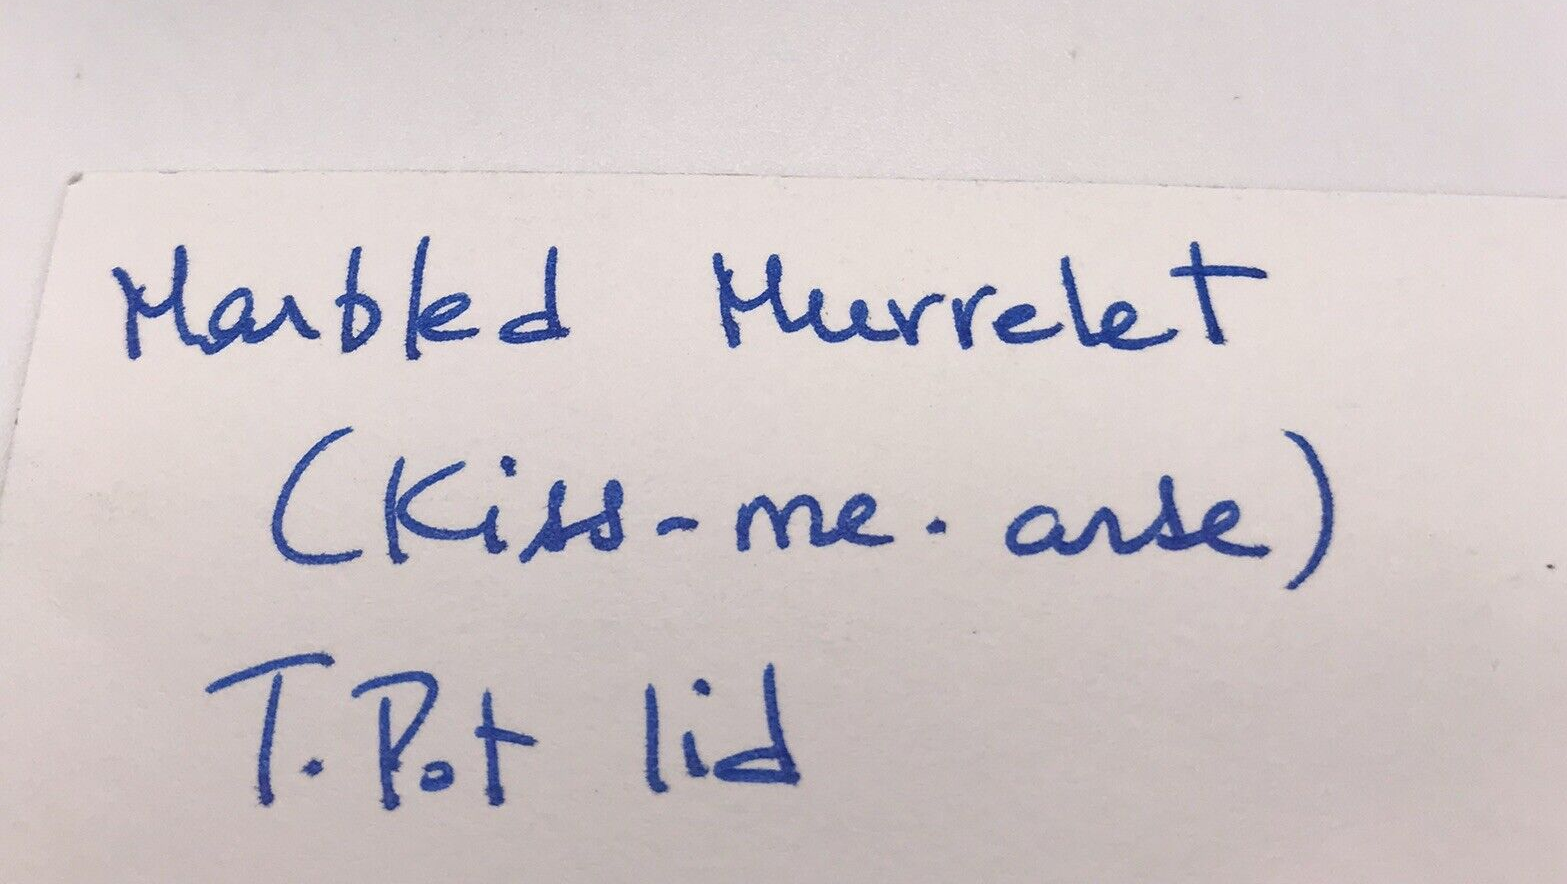 Marbled Murrelet
(Kiss-me. arse)
T.Pot lid